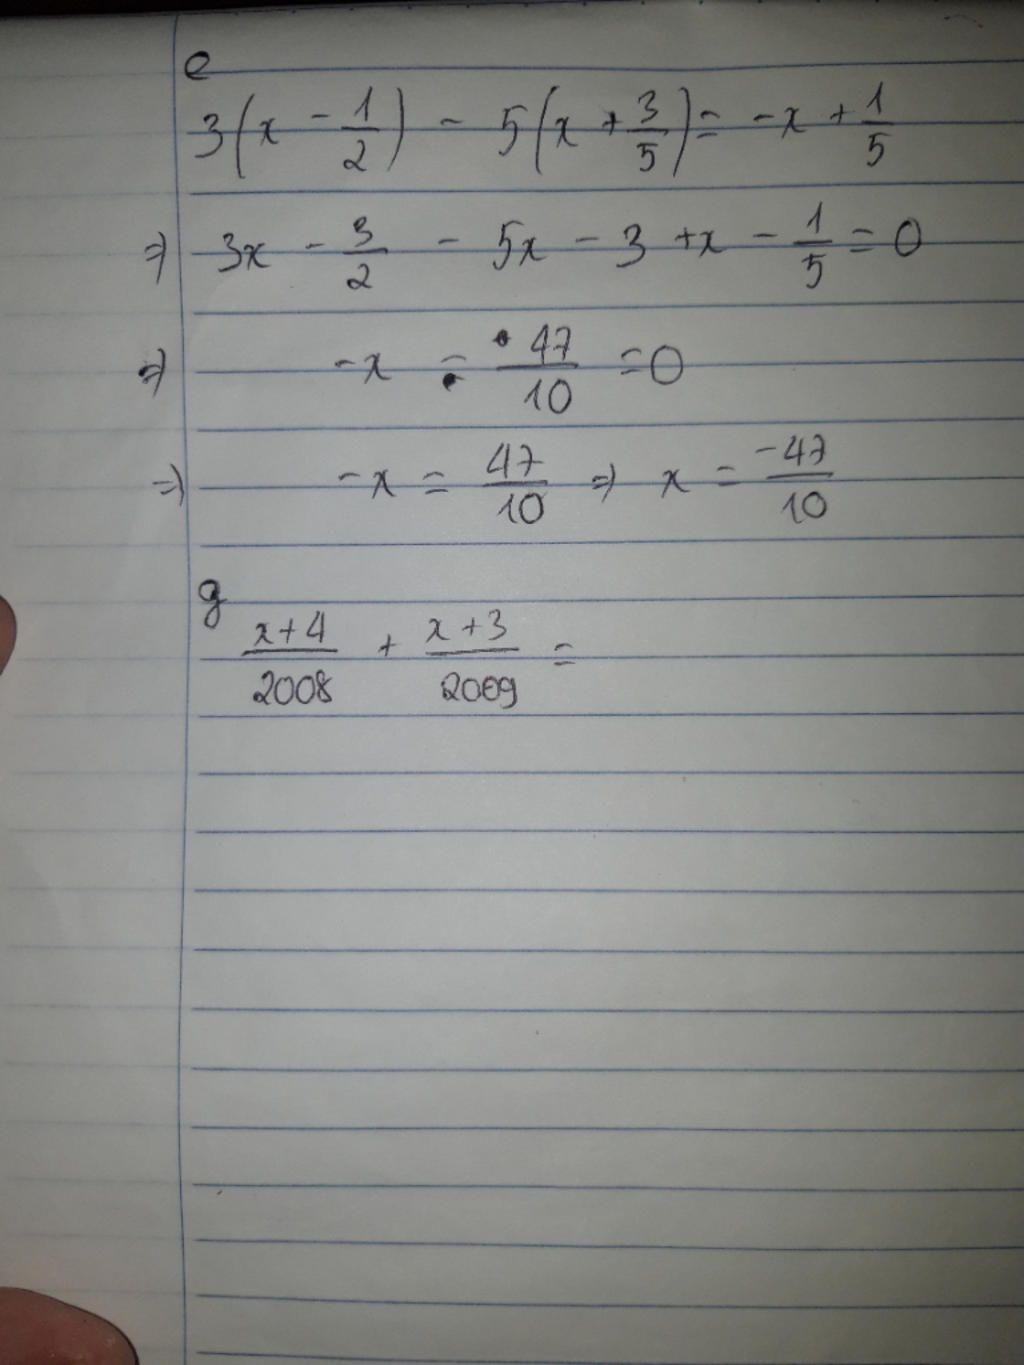 e
3(x - 1/2) - 5(x + 3/5) = -x + 1/5
=> 3x - 3/2 - 5x - 3 + x - 1/5 = 0
=> -x - 47/10 = 0
=> -x = 47/10 => x = -47/10
g
x+4/2008 + x+3/2009 =